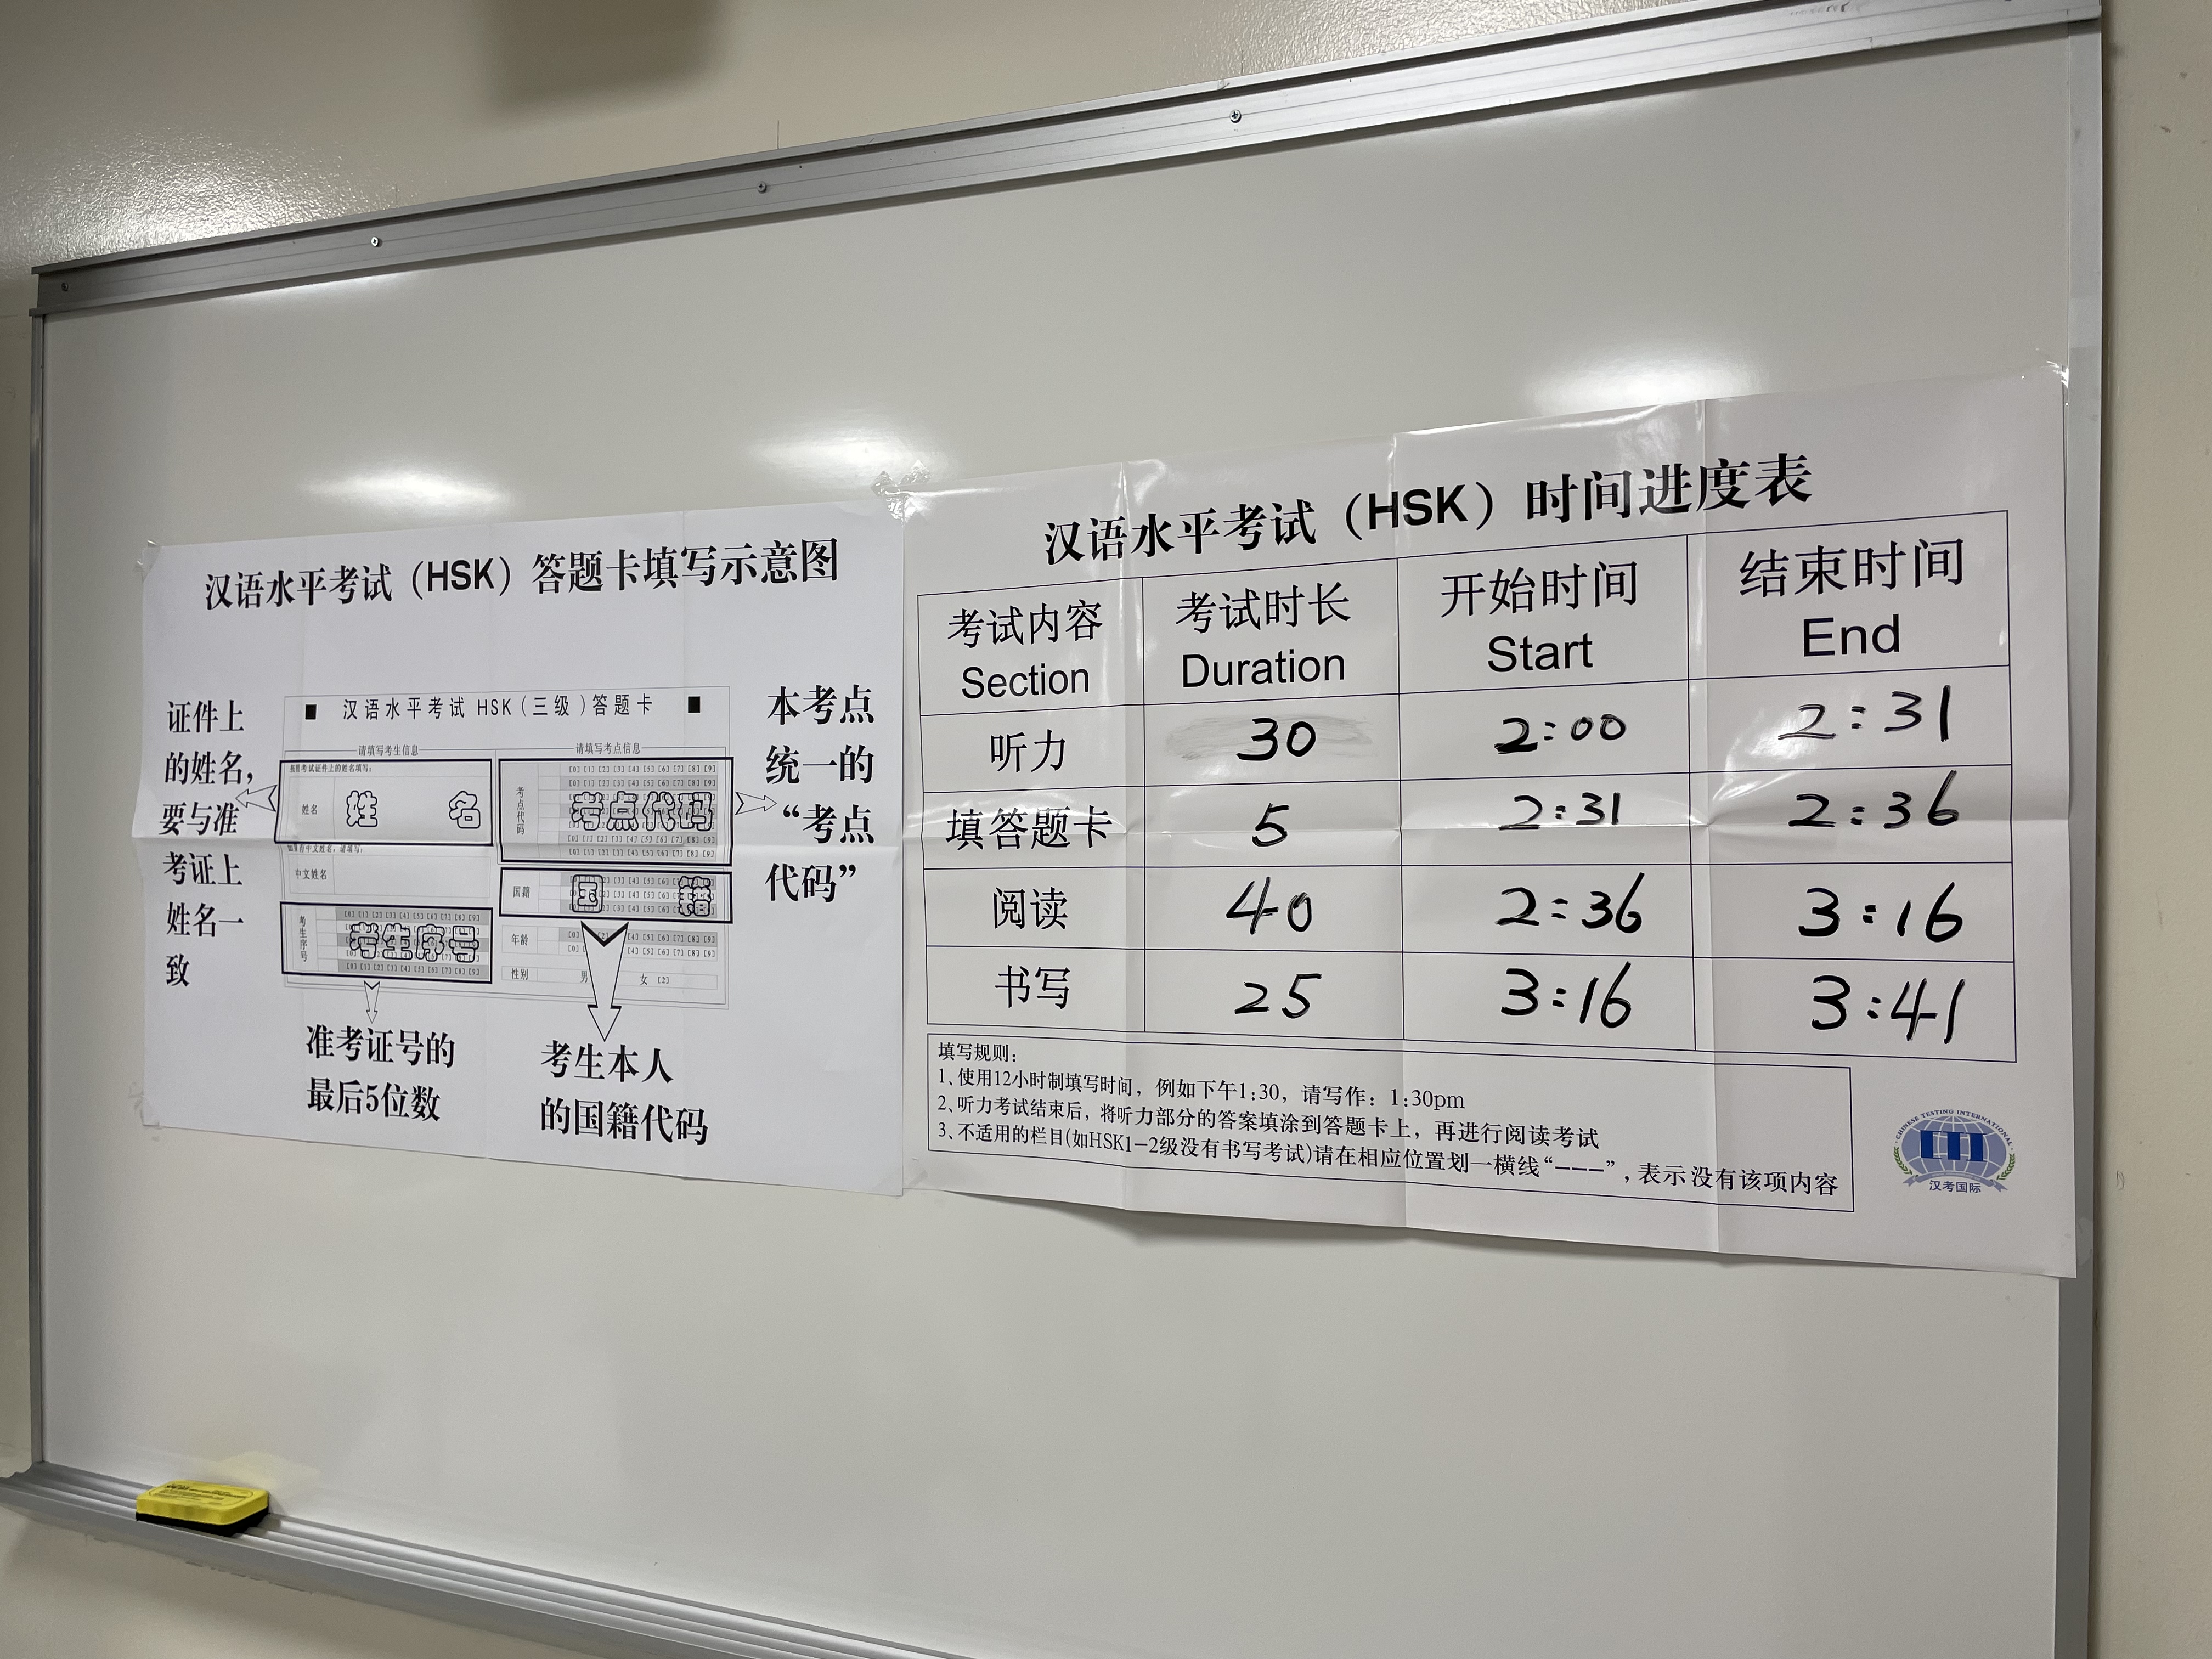 汉语水平考试（HSK）答题卡填写示意图
证件上
的姓名，
要与准
考证上
姓名一
致
■ 汉语水平考试 HSK（三级）答题卡 ■
请填写考生信息
按照考试证件上的姓名填写：
姓名
姓 名
如果有中文姓名，请填写：
中文姓名
考生序号
[0] [1] [2] [3] [4] [5] [6] [7] [8] [9]
考生序号
[0] [1] [2] [3] [4] [5] [6] [7] [8] [9]
请填写考点信息
考点代码
[0] [1] [2] [3] [4] [5] [6] [7] [8] [9]
[0] [1] [2] [3] [4] [5] [6] [7] [8] [9]
考点代码
[0] [1] [2] [3] [4] [5] [6] [7] [8] [9]
[0] [1] [2] [3] [4] [5] [6] [7] [8] [9]
国籍
国 籍
年龄
性别
男
女 [2]
本考点
统一的
“考点
代码”
准考证号的
最后5位数
考生本人
的国籍代码
汉语水平考试（HSK）时间进度表
考试内容 考试时长 开始时间 结束时间
Section Duration Start End
听力 30 2:00 2:31
填答题卡 5 2:31 2:36
阅读 40 2:36 3:16
书写 25 3:16 3:41
填写规则：
1、使用12小时制填写时间，例如下午1:30，请写作：1:30pm
2、听力考试结束后，将听力部分的答案填涂到答题卡上，再进行阅读考试
3、不适用的栏目(如HSK1-2级没有书写考试)请在相应位置划一横线“———”，表示没有该项内容
CHINESE TESTING INTERNATIONAL
CTI
汉考国际